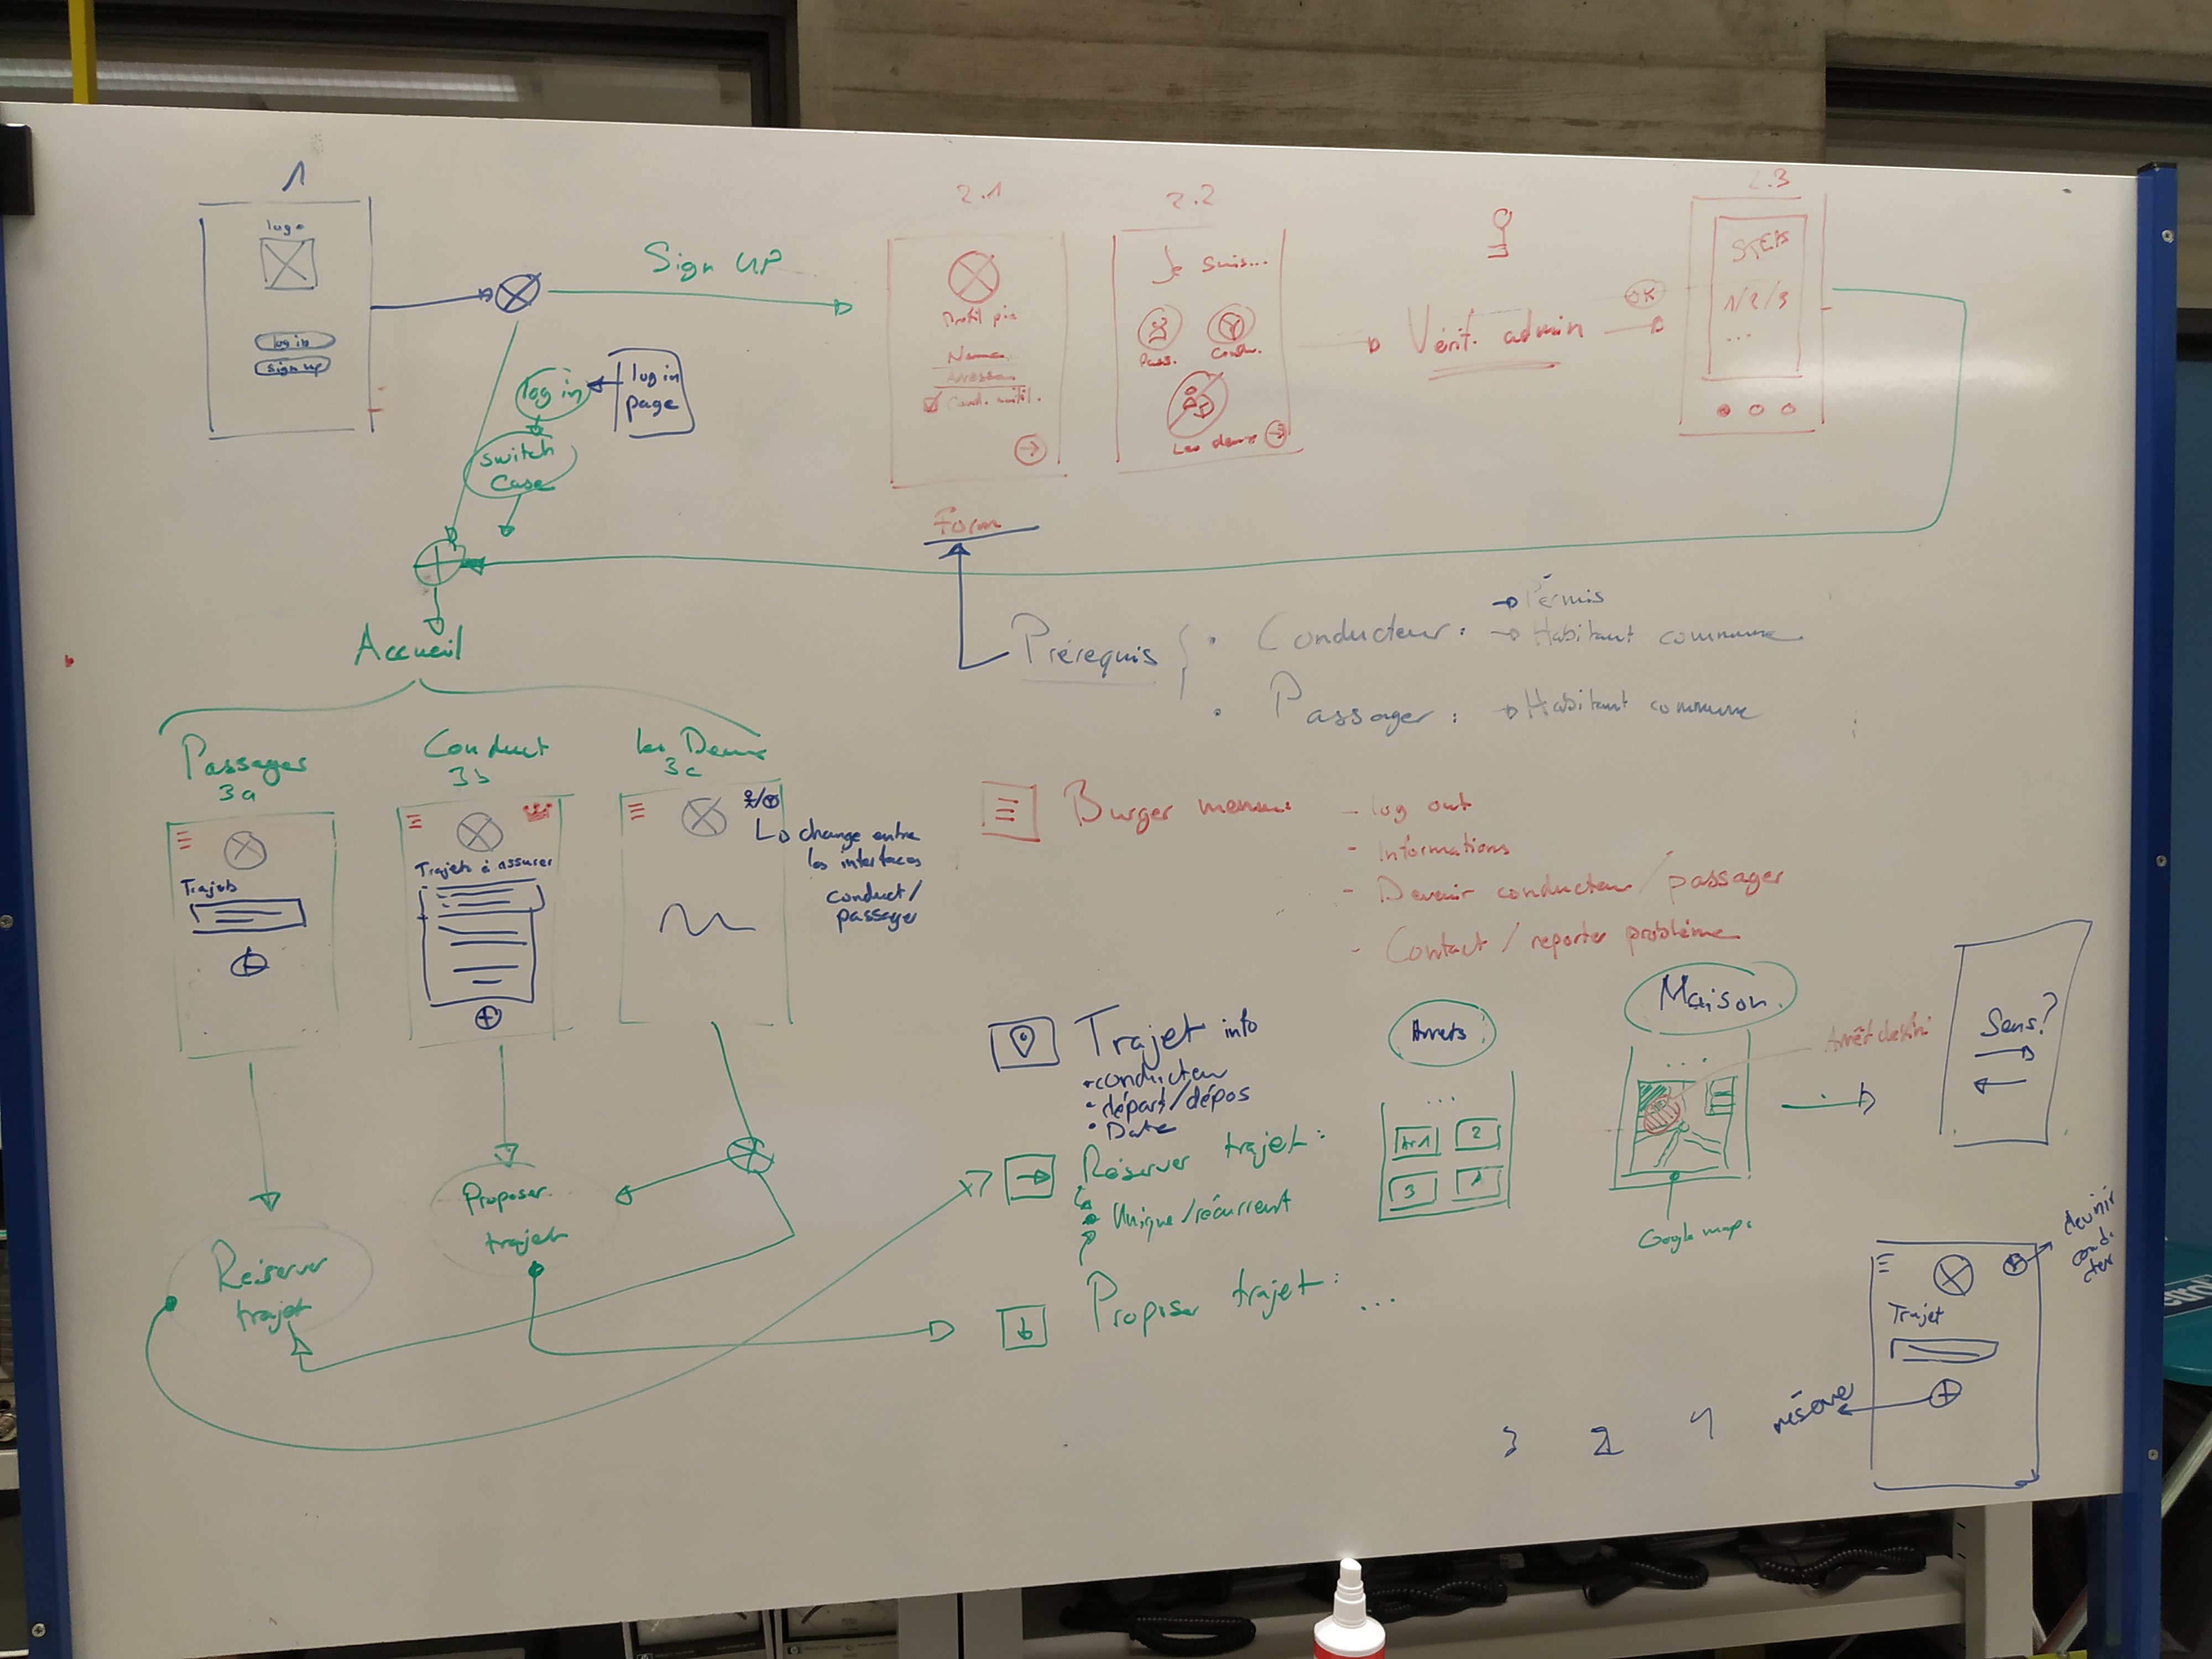 1
logo
log in
sign up
Sign UP
log in
log in
page
switch
case
2.1
Profil pic
Name
Adresse
Cond. util.
Form
2.2
Je suis...
Pass.
Condu.
Les deux
Vérif. admin
OK
2.3
STEPS
1/2/3
...
Accueil
Prérequis
Conducteur :
Permis
Habitant commune
Passager :
Habitant commune
Passager
3a
Trajets
Conduct
3b
Trajets à assurer
Les Deux
3c
change entre
les interfaces
conduct/
passager
Burger menu
- log out
- Informations
- Devenir conducteur / passager
- Contact / reporter problème
Trajet info
• conducteur
• départ/dépos
• Date
Réserver trajet :
Unique/récurrent
Proposer trajet :
...
Arrets
...
Arr1
2
3
Maison
...
Google maps
Sens?
Réserver
trajet
Proposer
trajet
devenir
Trajet
réserve
3 2